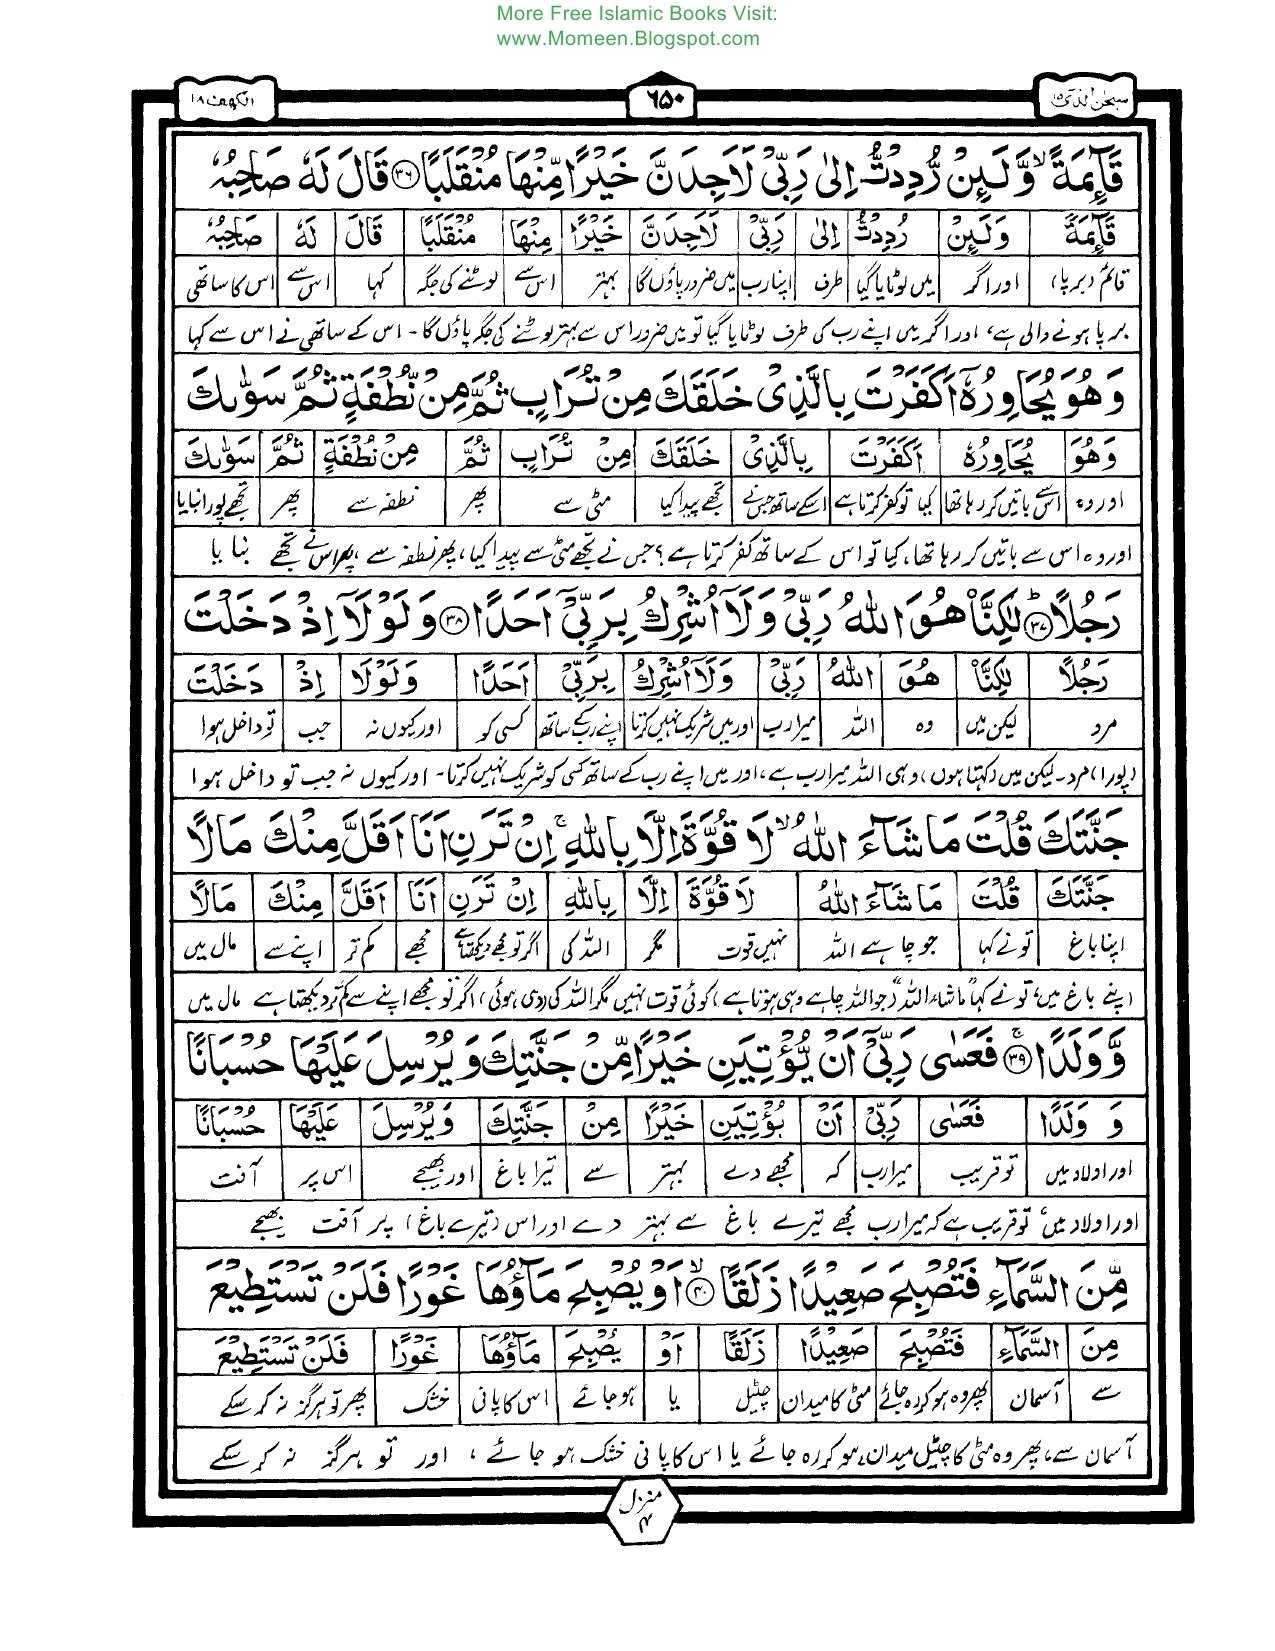 More Free Islamic Books Visit:
www.Momeen.Blogspot.com
سبحن الذی ۱۵
۶۵۰
الکهف ۱۸
قَآئِمَةً ۙ وَّلَئِنْ رُّدِدْتُّ اِلٰی رَبِّیْ لَاَجِدَنَّ خَیْرًا مِّنْهَا مُنْقَلَبًا ۳۶ قَالَ لَهٗ صَاحِبُهٗ
قَآئِمَةً وَلَئِنْ رُدِدْتُّ اِلٰی رَبِّیْ لَاَجِدَنَّ خَیْرًا مِنْهَا مُنْقَلَبًا قَالَ لَهٗ صَاحِبُهٗ
قائم (برپا) اور اگر میں لوٹایا گیا طرف اپنا رب میں ضرور پاؤں گا بہتر اس سے لوٹنے کی جگہ کہا اس سے اس کا ساتھی
برپا ہونے والی ہے، اور اگر میں اپنے رب کی طرف لوٹایا گیا تو میں ضرور اس سے بہتر لوٹنے کی جگہ پاؤں گا۔ اس کے ساتھی نے اس سے کہا
وَهُوَ یُحَاوِرُهٗۤ اَكَفَرْتَ بِالَّذِیْ خَلَقَكَ مِنْ تُرَابٍ ثُمَّ مِنْ نُّطْفَةٍ ثُمَّ سَوّٰىكَ
وَهُوَ یُحَاوِرُهٗ اَكَفَرْتَ بِالَّذِیْ خَلَقَكَ مِنْ تُرَابٍ ثُمَّ مِنْ نُطْفَةٍ ثُمَّ سَوّٰىكَ
اور وہ اس سے باتیں کر رہا تھا کیا تو کفر کرتا ہے اسکے ساتھ جس نے تجھے پیدا کیا مٹی سے پھر نطفہ سے پھر تجھے پورا بنایا
اور وہ اس سے باتیں کر رہا تھا، کیا تو اس کے ساتھ کفر کرتا ہے؟ جس نے تجھے مٹی سے پیدا کیا، پھر نطفہ سے، پھر اس نے تجھے بنایا
رَجُلًا ؕ ۳۷ لٰكِنَّا۠ هُوَ اللّٰهُ رَبِّیْ وَلَاۤ اُشْرِكُ بِرَبِّیْۤ اَحَدًا ۳۸ وَلَوْلَاۤ اِذْ دَخَلْتَ
رَجُلًا لٰكِنَّا۠ هُوَ اللّٰهُ رَبِّیْ وَلَاۤ اُشْرِكُ بِرَبِّیْ اَحَدًا وَلَوْلَا اِذْ دَخَلْتَ
مرد لیکن میں وہ اللہ میرا رب اور میں شریک نہیں کرتا اپنے رب کے ساتھ کسی کو اور کیوں نہ جب تو داخل ہوا
(پورا) مرد۔ لیکن میں (کہتا ہوں) وہی اللہ میرا رب ہے، اور میں اپنے رب کے ساتھ کسی کو شریک نہیں کرتا۔ اور کیوں نہ جب تو داخل ہوا
جَنَّتَكَ قُلْتَ مَا شَآءَ اللّٰهُ ۙ لَا قُوَّةَ اِلَّا بِاللّٰهِ ۚ اِنْ تَرَنِ اَنَا اَقَلَّ مِنْكَ مَالًا
جَنَّتَكَ قُلْتَ مَا شَآءَ اللّٰهُ لَا قُوَّةَ اِلَّا بِاللّٰهِ اِنْ تَرَنِ اَنَا اَقَلَّ مِنْكَ مَالًا
اپنا باغ تو نے کہا جو چاہے اللہ نہیں قوت مگر اللہ کی اگر تو مجھے دیکھتا ہے مجھے کم تر اپنے سے مال میں
اپنے باغ میں، تو نے کہا "ماشاء اللہ" (جو اللہ چاہے وہی ہوتا ہے) کوئی قوت نہیں مگر اللہ کی (دی ہوئی) اگر تو مجھے اپنے سے کم تر دیکھتا ہے مال میں
وَّ وَلَدًا ۚ ۳۹ فَعَسٰی رَبِّیْۤ اَنْ یُّؤْتِیَنِ خَیْرًا مِّنْ جَنَّتِكَ وَیُرْسِلَ عَلَیْهَا حُسْبَانًا
وَ وَلَدًا فَعَسٰی رَبِّیْ اَنْ یُؤْتِیَنِ خَیْرًا مِنْ جَنَّتِكَ وَیُرْسِلَ عَلَیْهَا حُسْبَانًا
اور اولاد میں تو قریب میرا رب کہ مجھے دے بہتر سے تیرا باغ اور بھیجے اس پر آفت
اور اولاد میں، تو قریب ہے کہ میرا رب مجھے تیرے باغ سے بہتر دے اور اس (تیرے باغ) پر آفت بھیجے
مِّنَ السَّمَآءِ فَتُصْبِحَ صَعِیْدًا زَلَقًا ۙ ۴۰ اَوْ یُصْبِحَ مَآؤُهَا غَوْرًا فَلَنْ تَسْتَطِیْعَ
مِنَ السَّمَآءِ فَتُصْبِحَ صَعِیْدًا زَلَقًا اَوْ یُصْبِحَ مَآؤُهَا غَوْرًا فَلَنْ تَسْتَطِیْعَ
سے آسمان پھر وہ ہو کر رہ جائے مٹی کا میدان چٹیل یا ہو جائے اس کا پانی خشک پھر تو ہرگز نہ کر سکے
آسمان سے، پھر وہ مٹی کا چٹیل میدان ہو کر رہ جائے یا اس کا پانی خشک ہو جائے، اور تو ہرگز نہ کر سکے
منزل
۴